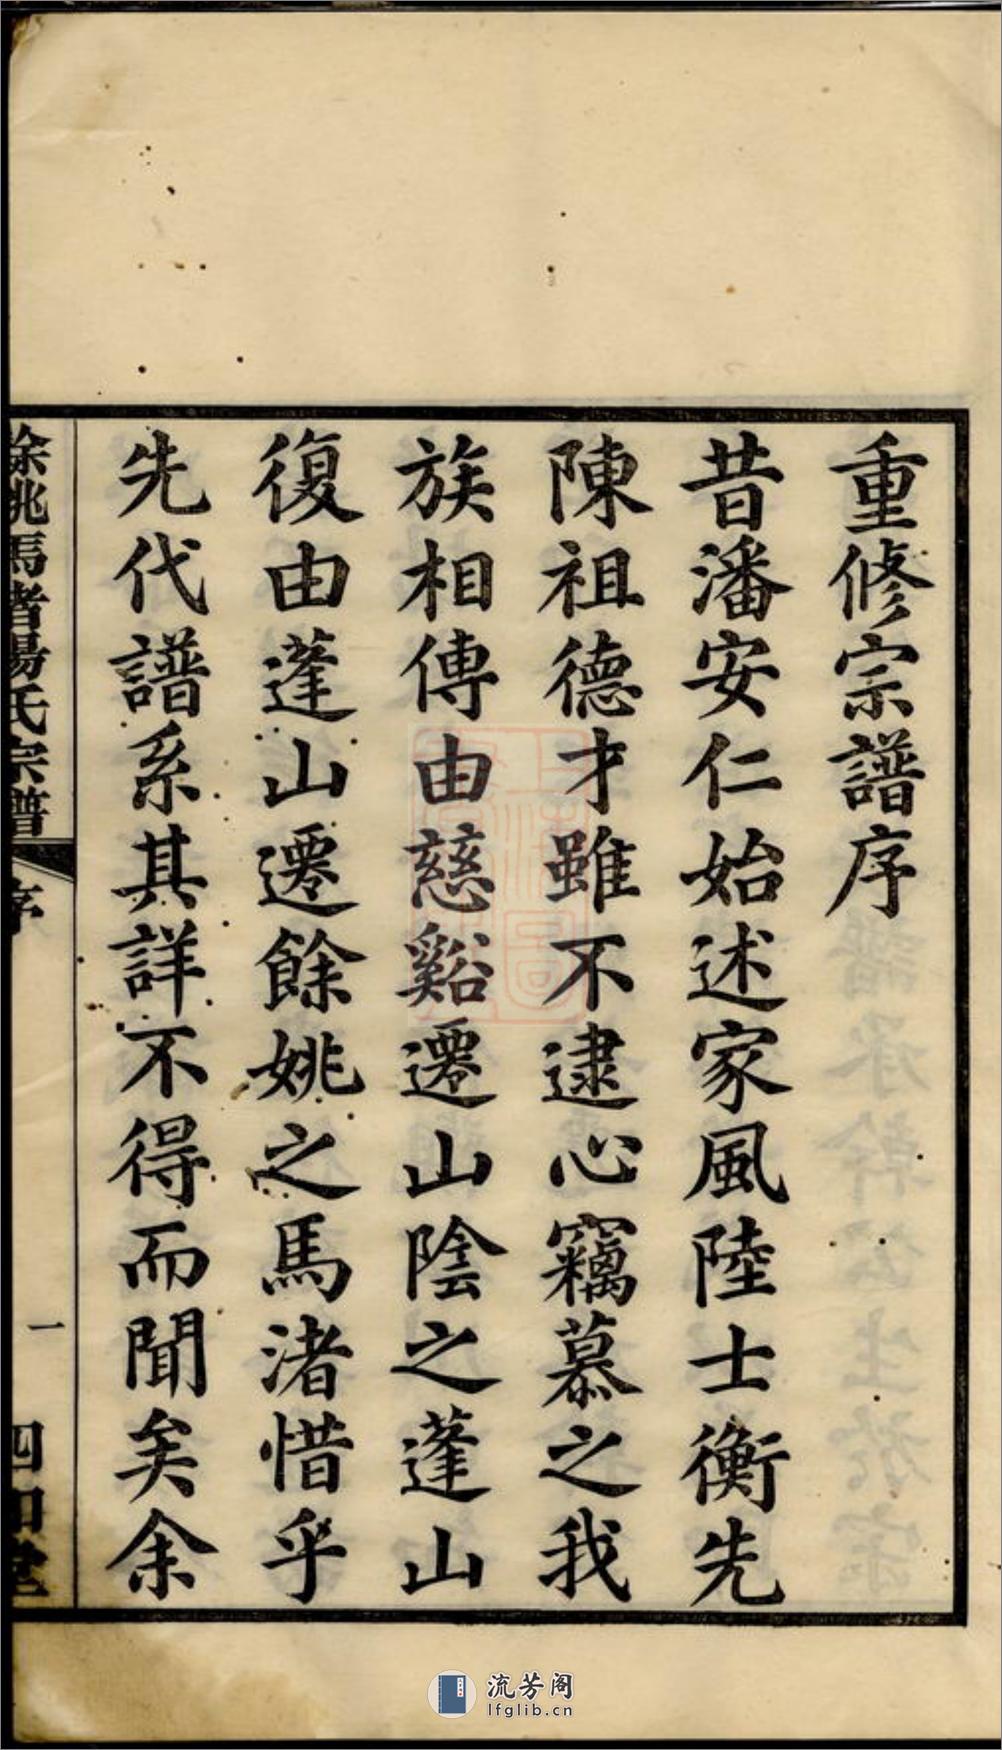 重修宗譜序
昔潘安仁始述家風陸士衡先
陳祖德才雖不逮心竊慕之我
族相傳由慈谿遷山陰之蓬山
復由蓬山遷餘姚之馬渚惜乎
先代譜系其詳不得而聞矣余
餘姚馬渚楊氏宗譜
序
一
四知堂
流芳阁
lfglib.cn